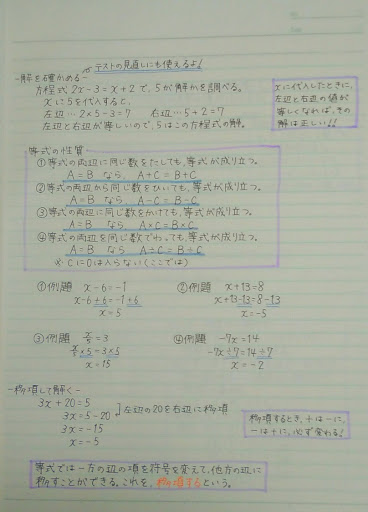 テストの見直しにも使えるよ!
-解を確かめる-
方程式 2x-3=x+2で、5が解かを調べる。
xに5を代入すると、
左辺… 2×5-3=7 右辺… 5+2=7
左辺と右辺が等しいので、5はこの方程式の解。
xに代入したときに、
左辺と右辺の値が
等しくなれば、その
解は正しい!!
等式の性質
①等式の両辺に同じ数をたしても、等式が成り立つ。
A=B なら A+C=B+C
②等式の両辺から同じ数をひいても、等式が成り立つ。
A=B なら A-C=B-C
③等式の両辺に同じ数をかけても、等式が成り立つ。
A=B なら A×C=B×C
④等式の両辺を同じ数でわっても、等式が成り立つ。
A=B なら A÷C=B÷C
※Cに0は入らない(ここでは)
①例題 x-6=-1
x-6+6=-1+6
x=5
②例題 x+13=8
x+13-13=8-13
x=-5
③例題 x/5=3
x/5×5=3×5
x=15
④例題 -7x=14
-7x÷7=14÷7
x=-2
-移項して解く-
3x+20=5
3x=5-20
3x=-15
x=-5
左辺の20を右辺に移項
移項するとき、+は-に、
-は+に、必ず変わる!
等式では一方の辺の項を符号を変えて、他方の辺に
移すことができる。これを、移項するという。